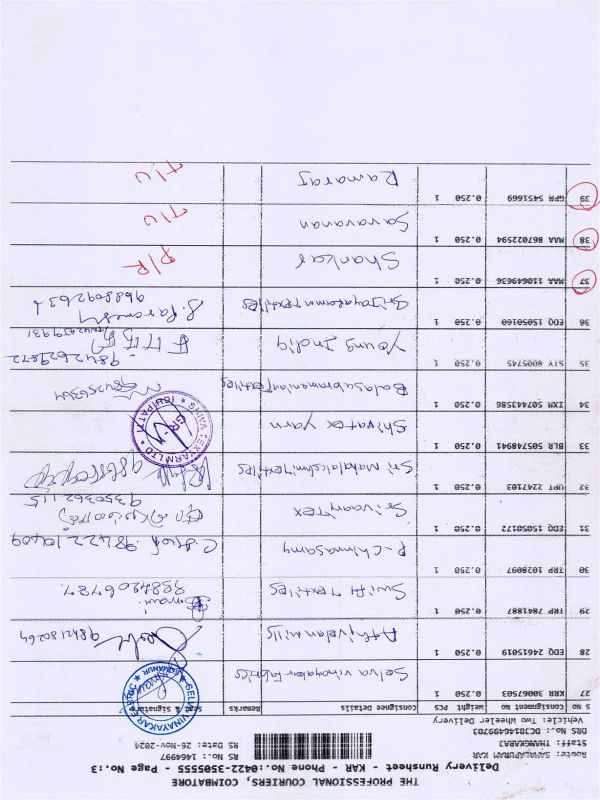 THE PROFESSIONAL COURIERS, COIMBATORE
Delivery Runsheet - KAR - Phone No.:0422-3505555 - Page No.:3
Route: SAMALAPURAM KAR
Staff: THANGARAJ RS No.: 1464997
DRS No.: DCBI46499703 RS Date: 26-Nov-2024
Vehicle: Two Wheeler Delivery
S NO Consignment No Weight PCS Consignee Details Remarks Seal & Signature
27 KRR 30067503 0.250 1 Selva vinayakar Fabrics
28 EDQ 24615019 0.250 1 Athivelan mills 9842180264
29 TRP 7841887 0.250 1 Swift Textiles 9584206787
30 TRP 1028097 0.250 1 P. Chinnasamy 9842210409
31 EDQ 15050172 0.250 1 Sri vaary Tex
9350362115
32 UPT 2247103 0.250 1 Sri Mahalakshmi Textiles
33 BLR 505748941 0.250 1 Shivatex yarn
34 IXM 507443586 0.250 1 Balasubramanian Textiles
35 STV 8005745 0.250 1 Young India - 9842629872
36 EDQ 15050160 0.250 1 Sri Jayaraman Textiles
9688092636
37 MAA 110649636 0.250 1 Shankar P/R
38 MAA 867022594 0.250 1 Saravanan T/U
39 GPM 5451669 0.250 1 Ramaraj T/U